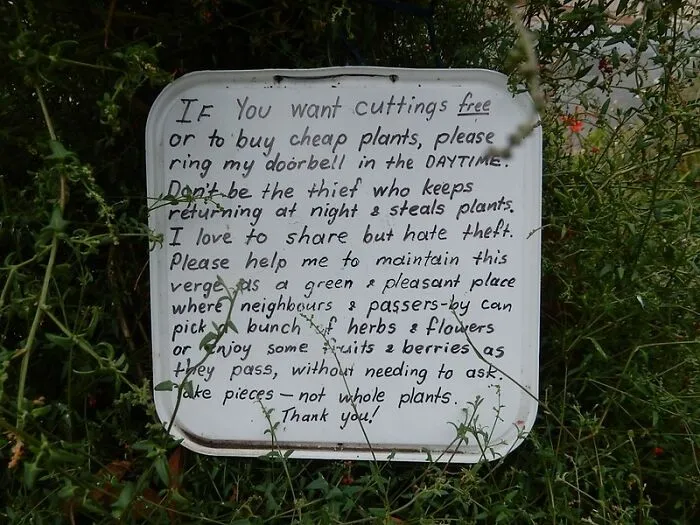 IF You want cuttings free
or to buy cheap plants, please
ring my doorbell in the DAYTIME.
Don't be the thief who keeps
returning at night & steals plants.
I love to share but hate theft.
Please help me to maintain this
verge as a green & pleasant place
where neighbours & passers-by can
pick a bunch of herbs & flowers
or enjoy some fruits & berries as
they pass, without needing to ask.
Take pieces — not whole plants.
Thank you!